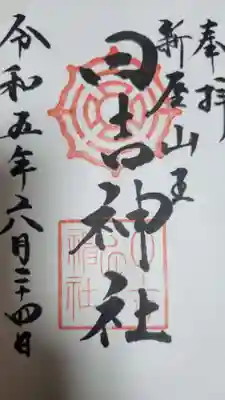 奉拝
新屋山王
日吉神社
令和五年六月二十四日